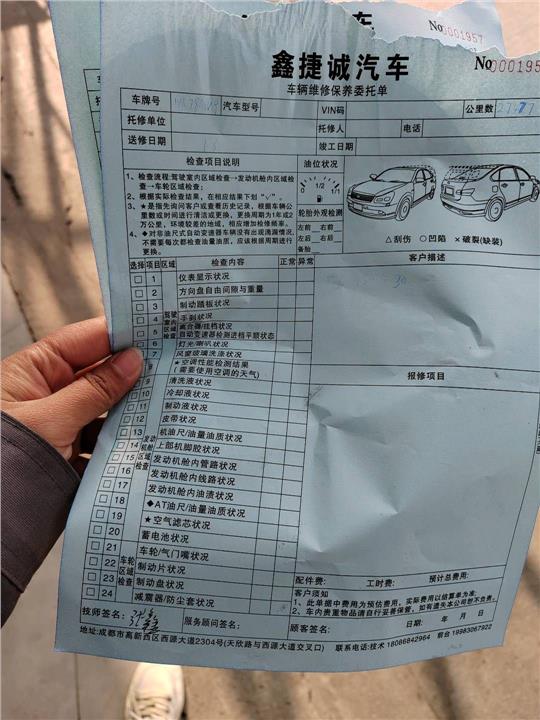 No 0001957
汽车
No 000195
鑫捷诚汽车
车辆维修保养委托单
车牌号 汽车型号 VIN码 公里数
托修单位 托修人 电话
送修日期 竣工日期
检查项目说明
油位状况
1、检查流程:驾驶室内区域检查→发动机舱内区域检查→车轮区域检查;
2、根据实际检查结果,在相应结果下划“√”。
3、★是指先询问客户或查看历史记录,根据车辆公里数或时间进行清洁或更换,更换周期为1年或2万公里,环境较差的地域,相应增加检修频率。
4、◆对非油尺式自动变速器车辆没有出现渗漏情况,不需要每次都检查油量油质,应该根据周期进行更换。
0 1/2 1/1
轮胎外观检测
左前 右前
左后 右后
备胎
△刮伤 ○凹陷 ×破裂(缺装)
选择 项目 区域 检查内容 正常 异常
客户描述
1 仪表显示状况
2 方向盘自由间隙与重量
3 制动踏板状况
驾驶室内区域检查
4 手刹状况
5 离合器/挂档状况
自动变速器检测进档平顺状态
灯光/喇叭状况
7 风窗玻璃洗涤状况
★空调性能检测结果
(需要使用空调的天气)
报修项目
9 清洗液状况
10 冷却液状况
11 制动液状况
12 皮带状况
13 机油尺/油量油质状况
发动机舱区域检查
14 上部机脚胶状况
15 发动机舱内管路状况
16 发动机舱内线路状况
17 发动机舱内油渍状况
18 ◆AT油尺/油量油质状况
19 ★空气滤芯状况
20 蓄电池状况
21 车轮/气门嘴状况
车轮区域检查
22 制动片状况
23 制动盘状况
24 减震器/防尘套状况
配件费: 工时费: 预计总费用:
客户须知
1、此单据中费用为预估费用,实际费用以结算单为准.
2、车内贵重物品请自行妥善保管,如有遗失本公司恕不负责.
技师签名: 服务顾问签名: 顾客签名: 日期: 年 月 日
地址:成都市高新西区西源大道2304号(天欣路与西源大道交叉口) 联系电话:技术 18086842964 前台 19983067922